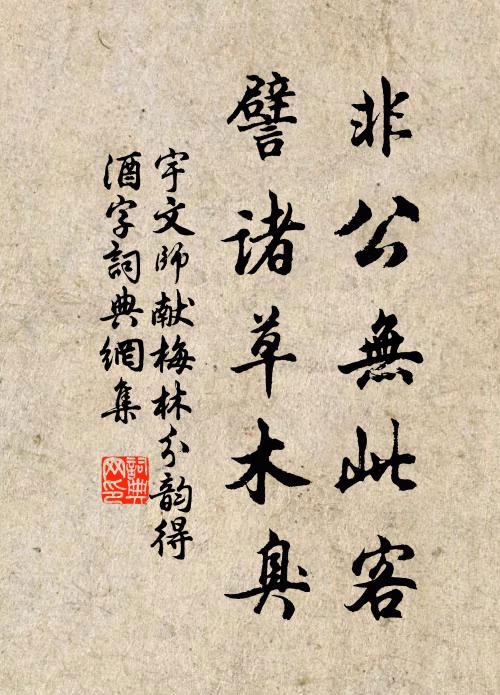 非公無此客
譬諸草木臭
宇文師献梅林分韵得
酒字詞典網集
詞典
网印